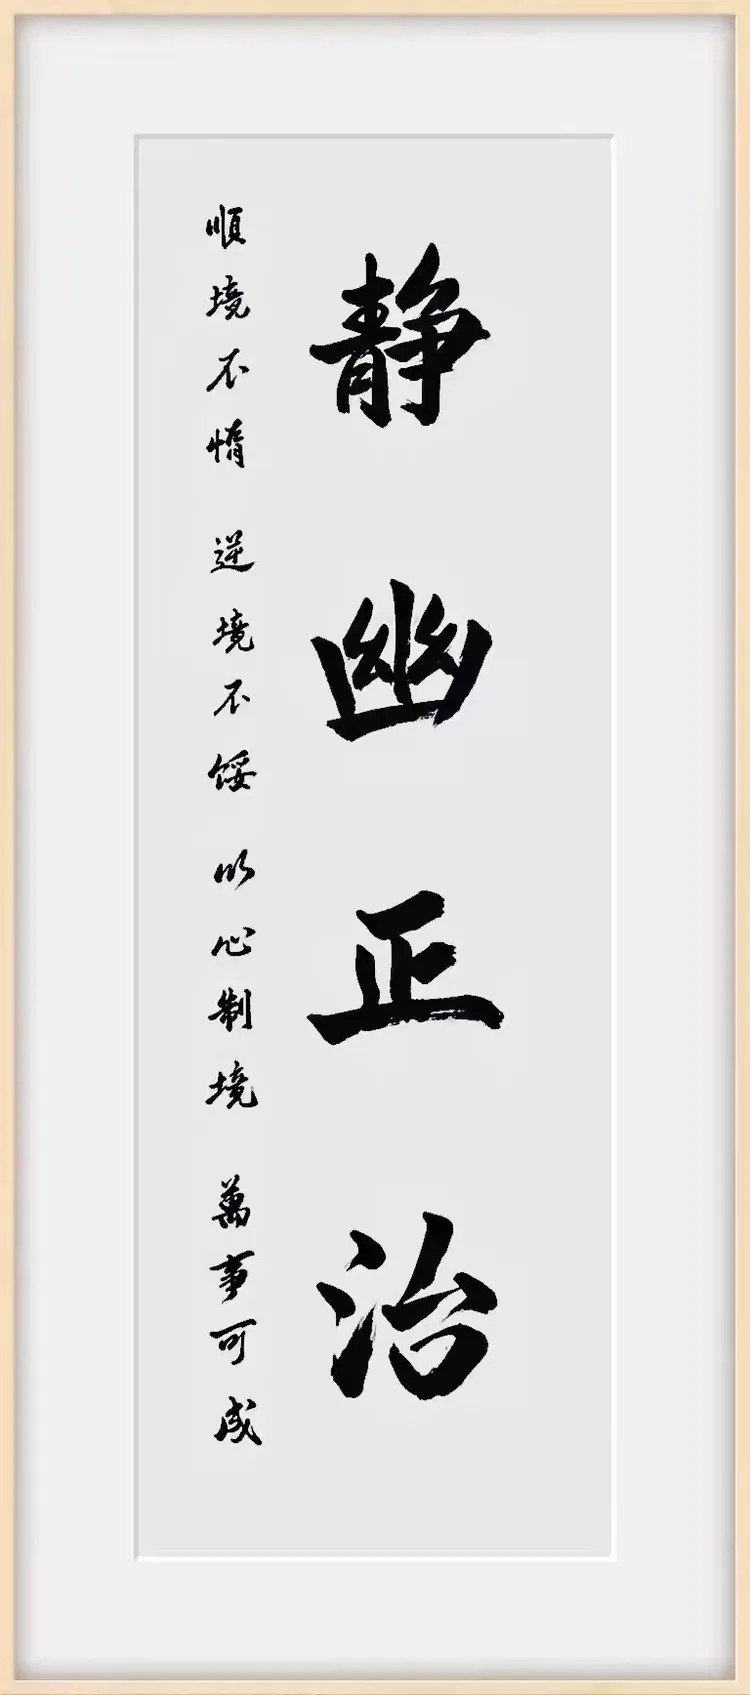 静幽正治
順境不惰 逆境不馁 以心制境 萬事可成